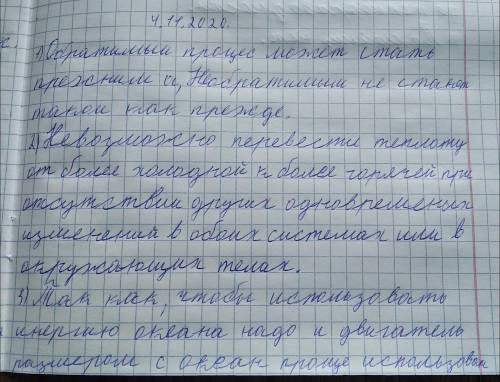 4.11.2020.
1) Обратимый процес может стать
прежним а, Необратимым не станет
такой как прежде.
2) Невозможно перевести теплоту
от более холодной к более горячей при
отсутствии других одновременных
изменений в обоих системах или в
окружающих телах.
3) Так как, чтобы использовать
инергию океана надо и двигатель
размером с океан проще использован